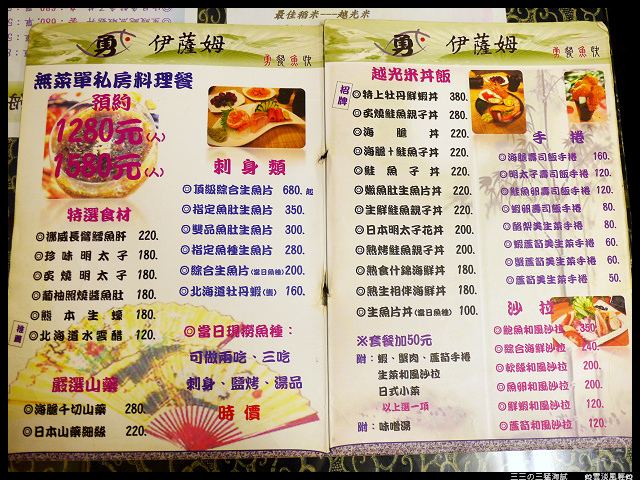 最佳稻米---越光米
勇 伊薩姆
無菜單私房料理餐
預約
1280元(人)
1580元(人)
特選食材
◎挪威長鰭鱈魚肝 220.
◎珍味明太子 180.
◎炙燒明太子 180.
◎葡柚照燒醬魚肚 180.
◎熊本生蠔 180.
推薦
◎北海道水雲醋 120.
嚴選山藥
◎海膽千切山藥 280.
◎日本山藥細絲 220.
刺身類
◎頂級綜合生魚片 680.起
◎指定魚肚生魚片 350.
◎雙品魚肚生魚片 300.
◎指定魚種生魚片 280.
◎綜合生魚片(當日魚種)200.
◎北海道牡丹蝦(隻) 160.
◎當日現撈魚種：
可做兩吃、三吃
刺身、鹽烤、湯品
時價
勇 伊薩姆
勇餐魚飲
越光米丼飯
招牌
◎特上牡丹鮮蝦丼 380.
◎炙燒鮭魚親子丼 280.
◎海膽丼 220.
◎海膽+鮭魚子丼 220.
◎鮭魚子丼 220.
◎嫩魚肚生魚片丼 220.
◎生鮮鮭魚親子丼 220.
◎日本明太子花丼 200.
◎熟烤鮭魚親子丼 200.
◎熟食什錦海鮮丼 180.
◎熟生相伴海鮮丼 180.
◎生魚片丼(當日魚種) 100.
※套餐加50元
附：蝦、蟹肉、蘆筍手捲
生菜和風沙拉
日式小菜
以上選一項
附：味噌湯
手捲
◎海膽壽司飯手捲 160.
◎明太子壽司飯手捲 120.
◎鮭魚卵壽司飯手捲 120.
◎蝦卵壽司飯手捲 80.
◎酪梨美生菜手捲 80.
◎蝦蘆筍美生菜手捲 60.
◎蟹蘆筍美生菜手捲 60.
◎蘆筍美生菜手捲 50.
沙拉
◎鮑魚和風沙拉 350.
◎綜合海鮮沙拉 240.
◎軟絲和風沙拉 200.
◎魚卵和風沙拉 200.
◎鮮蝦和風沙拉 120.
◎蘆筍和風沙拉 120.
三三の三猛海賊
雲淡風輕